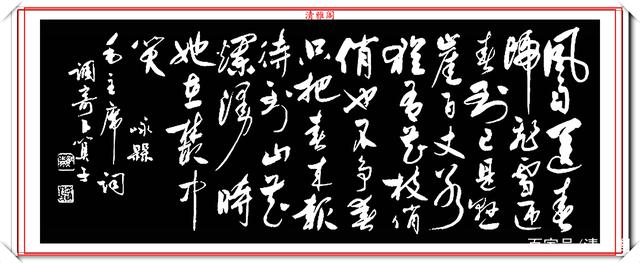 清雅阁
風雨送春
歸飛雪迎
春到已是懸
崖百丈冰
猶有花枝俏
俏也不爭春
只把春來報
待到山花
爛漫時
她在叢中
笑
咏槑
毛主席词
調寄卜算子
百家号/清